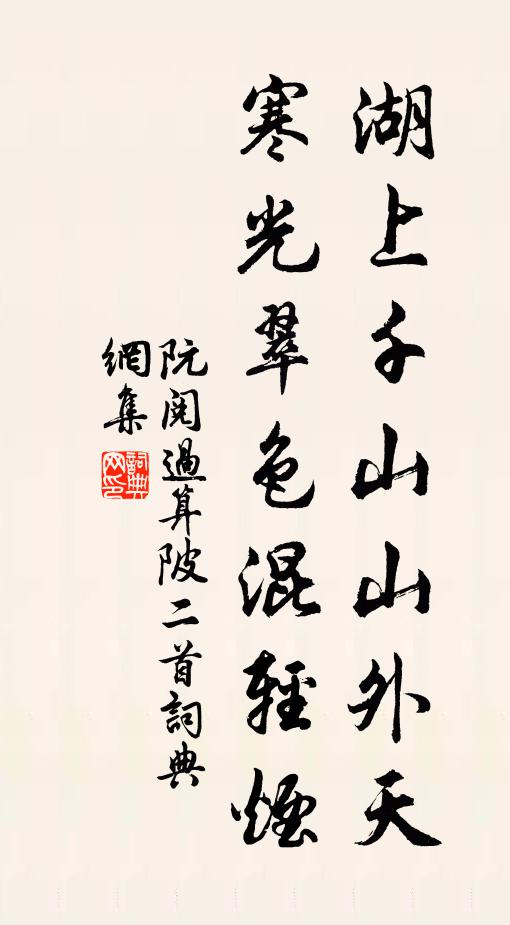 湖上千山山外天
寒光翠色混輕煙
阮閱過算陂二首詞典
網集
詞典
网印